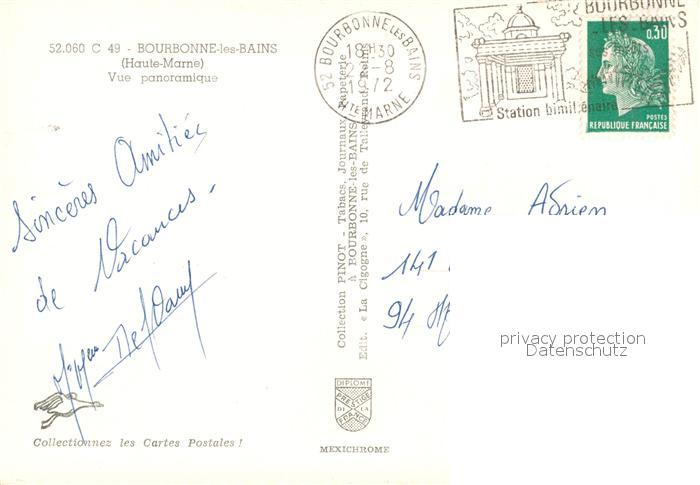 52.060 C 49 - BOURBONNE-les-BAINS
(Haute-Marne)
Vue panoramique
52 BOURBONNE LES BAINS
18H30
1972
HTE MARNE
BOURBONNE
LES-BAINS
Station bimillénaire
0,30
POSTES
REPUBLIQUE FRANÇAISE
Sincères Amitiés
de Vacances.
Collection PINOT - Tabacs, Journaux, Papeterie
à BOURBONNE-les-BAINS
Edit. « La Cigogne », 10, rue de Talleyrand, Reims
Madame Adrien
141
94
privacy protection
Datenschutz
DIPLOME
PRESTIGE
DE LA
FRANCE
Collectionnez les Cartes Postales !
MEXICHROME